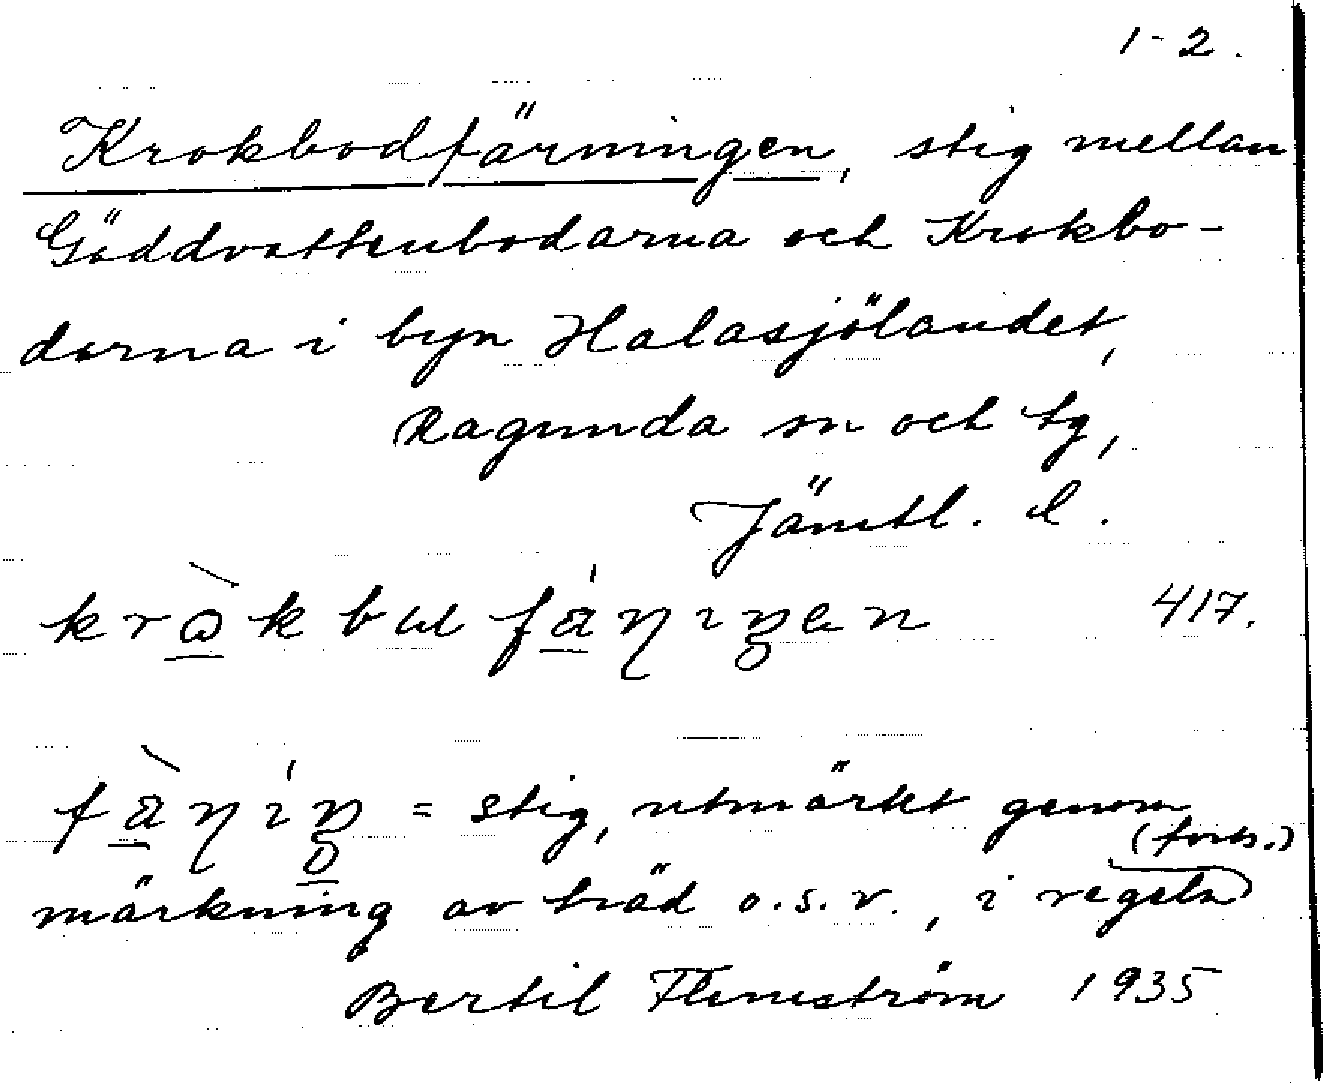 1-2.
Krokbodfärningen, stig mellan
Gäddvattenbodarna och Krokbo-
darna i byn Halasjölandet,
Ragunda sn och tg,
Jämtl. l.
417.
= stig, utmärkt genom
(forts.)
märkning av träd o.s.v., i regeln
Bertil Flemström 1935